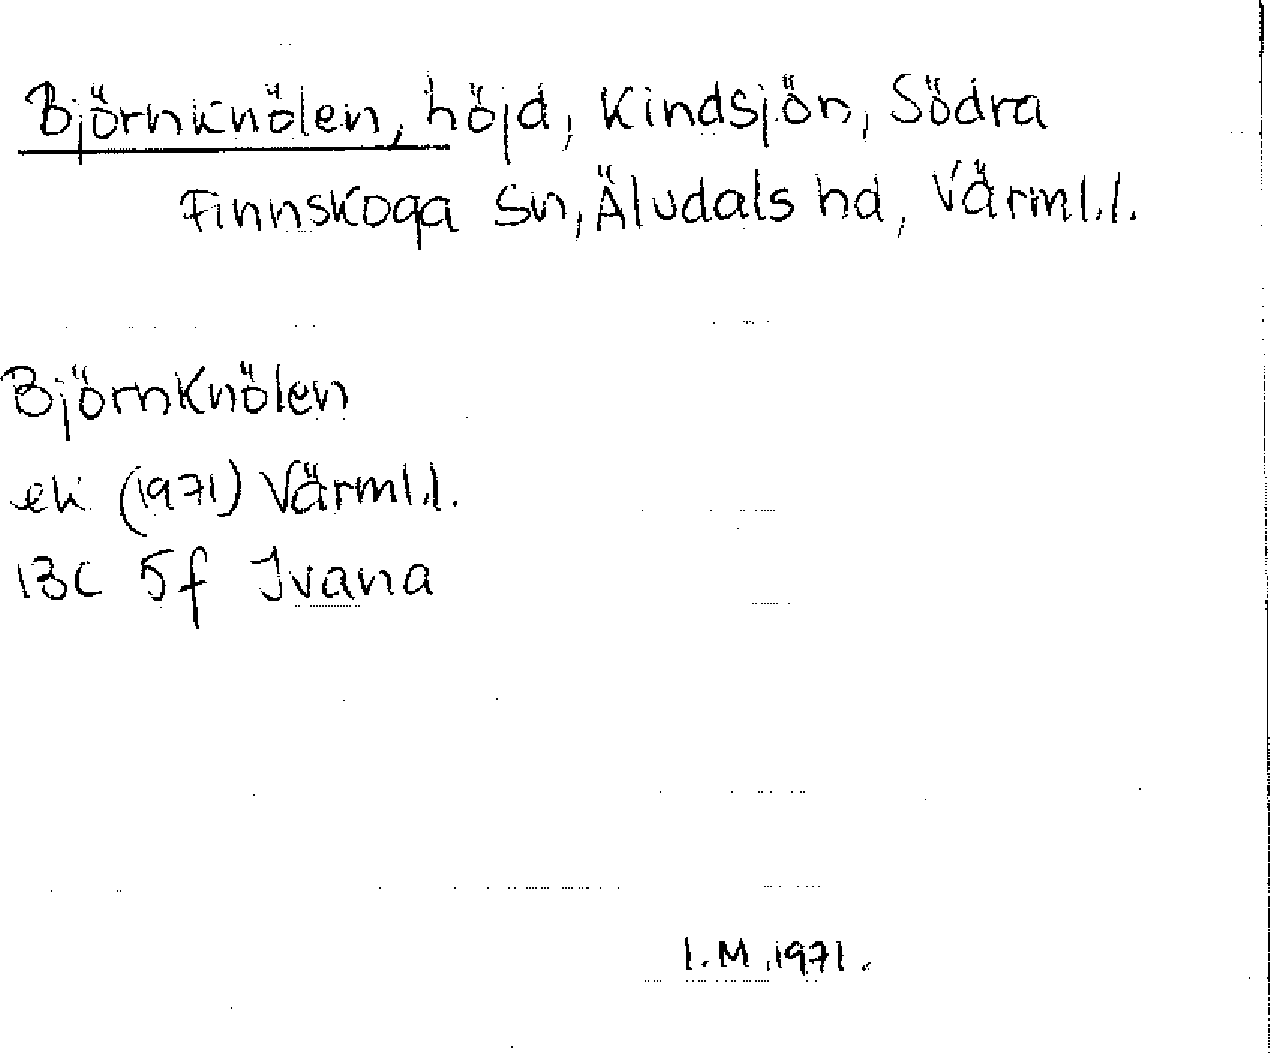 Björnknölen, höjd, Kindsjön, Södra
Finnskoga sn, Älvdals hd, Värml.l.
Björnknölen
ek (1971) Värml.l.
13C 5f Ivana
I.M. 1971.